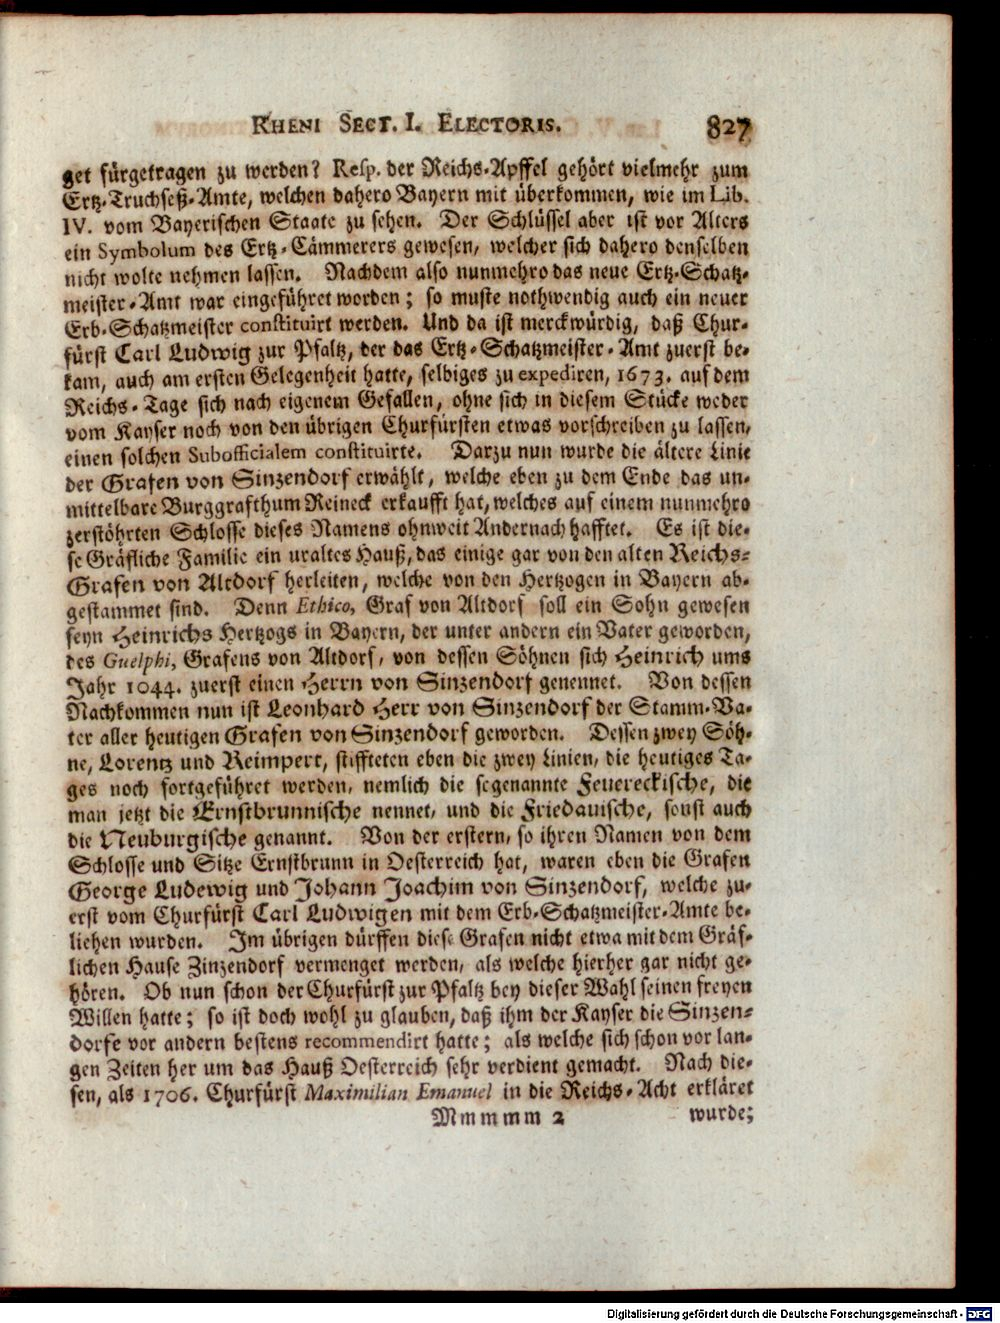 RHENI SECT. I. ELECTORIS. 827
get fürgetragen zu werden? Resp. der Reichs-Apffel gehört vielmehr zum
Ertz-Truchseß-Amte, welchen dahero Bayern mit überkommen, wie im Lib.
IV. vom Bayerischen Staate zu sehen. Der Schlüssel aber ist vor Alters
ein Symbolum des Ertz-Cämmerers gewesen, welcher sich dahero denselben
nicht wolte nehmen lassen. Nachdem also nunmehro das neue Ertz-Schatz-
meister-Amt war eingeführet worden; so muste nothwendig auch ein neuer
Erb-Schatzmeister constituirt werden. Und da ist merckwürdig, daß Chur-
fürst Carl Ludwig zur Pfaltz, der das Ertz-Schatzmeister-Amt zuerst be-
kam, auch am ersten Gelegenheit hatte, selbiges zu expediren, 1673. auf dem
Reichs-Tage sich nach eigenem Gefallen, ohne sich in diesem Stücke weder
vom Kayser noch von den übrigen Churfürsten etwas vorschreiben zu lassen,
einen solchen Subofficialem constituirte. Darzu nun wurde die ältere Linie
der Grafen von Sinzendorf erwählt, welche eben zu dem Ende das un-
mittelbare Burggrafthum Reineck erkaufft hat, welches auf einem nunmehro
zerstöhrten Schlosse dieses Namens ohnweit Andernach hafftet. Es ist die-
se Gräfliche Familie ein uraltes Hauß, das einige gar von den alten Reichs-
Grafen von Altdorf herleiten, welche von den Hertzogen in Bayern ab-
gestammet sind. Denn Ethico, Graf von Altdorf soll ein Sohn gewesen
seyn Heinrichs Hertzogs in Bayern, der unter andern ein Vater geworden,
des Guelphi, Grafens von Altdorf, von dessen Söhnen sich Heinrich ums
Jahr 1044. zuerst einen Herrn von Sinzendorf genennet. Von dessen
Nachkommen nun ist Leonhard Herr von Sinzendorf der Stamm-Va-
ter aller heutigen Grafen von Sinzendorf geworden. Dessen zwey Söh-
ne, Lorentz und Reimpert, stiffteten eben die zwey Linien, die heutiges Ta-
ges noch fortgeführet werden, nemlich die segenannte Feuereckische, die
man jetzt die Ernstbrunnische nennet, und die Friedauische, sonst auch
die Neuburgische genannt. Von der erstern, so ihren Namen von dem
Schlosse und Sitze Ernstbrunn in Oesterreich hat, waren eben die Grafen
George Ludewig und Johann Joachim von Sinzendorf, welche zu-
erst vom Churfürst Carl Ludwigen mit dem Erb-Schatzmeister-Amte be-
liehen wurden. Im übrigen dürffen diese Grafen nicht etwa mit dem Gräf-
lichen Hause Zinzendorf vermenget werden, als welche hierher gar nicht ge-
hören. Ob nun schon der Churfürst zur Pfaltz bey dieser Wahl seinen freyen
Willen hatte; so ist doch wohl zu glauben, daß ihm der Kayser die Sinzen-
dorfe vor andern bestens recommendirt hatte; als welche sich schon vor lan-
gen Zeiten her um das Hauß Oesterreich sehr verdient gemacht. Nach die-
sen, als 1706. Churfürst Maximilian Emanuel in die Reichs-Acht erkläret
Mmmmm 2 wurde;
Digitalisierung gefördert durch die Deutsche Forschungsgemeinschaft - DFG